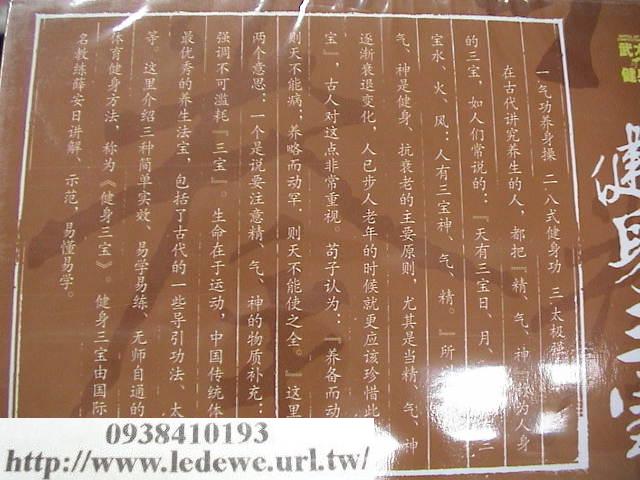 武
健
健身三宝
一气功养身操 二八式健身功 三太极
在古代讲究养生的人，都把『精、气、神』称为人身
的三宝，如人们常说的：『天有三宝日、月、
宝水、火、风；人有三宝神、气、精。』所
气、神是健身、抗衰老的主要原则，尤其是当精、气、神
逐渐衰退变化，人已步人老年的时候就更应该珍惜此
宝』，古人对这点非常重视。荀子认为：『养备而动
则天不能病；养略而动罕，则天不能使之全。』这里
两个意思：一个是说要注意精、气、神的物质补充；
强调不可滥耗『三宝』。生命在于运动，中国传统体
最优秀的养生法宝，包括了古代的一些导引功法、太
等。这里介绍三种简单实效、易学易练、无师自通的
体育健身方法，称为《健身三宝》。健身三宝由国际
名教练薛安日讲解、示范，易懂易学。
0938410193
http://www.ledewe.url.tw/